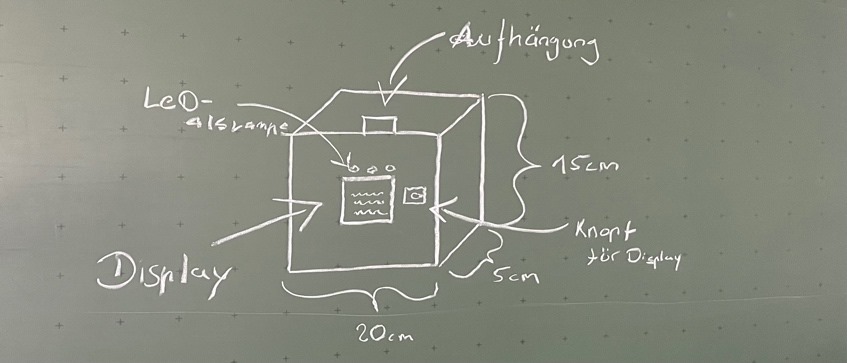 Aufhängung
LeD-
alsrampe
15cm
Knopf
für Display
5cm
Display
20cm